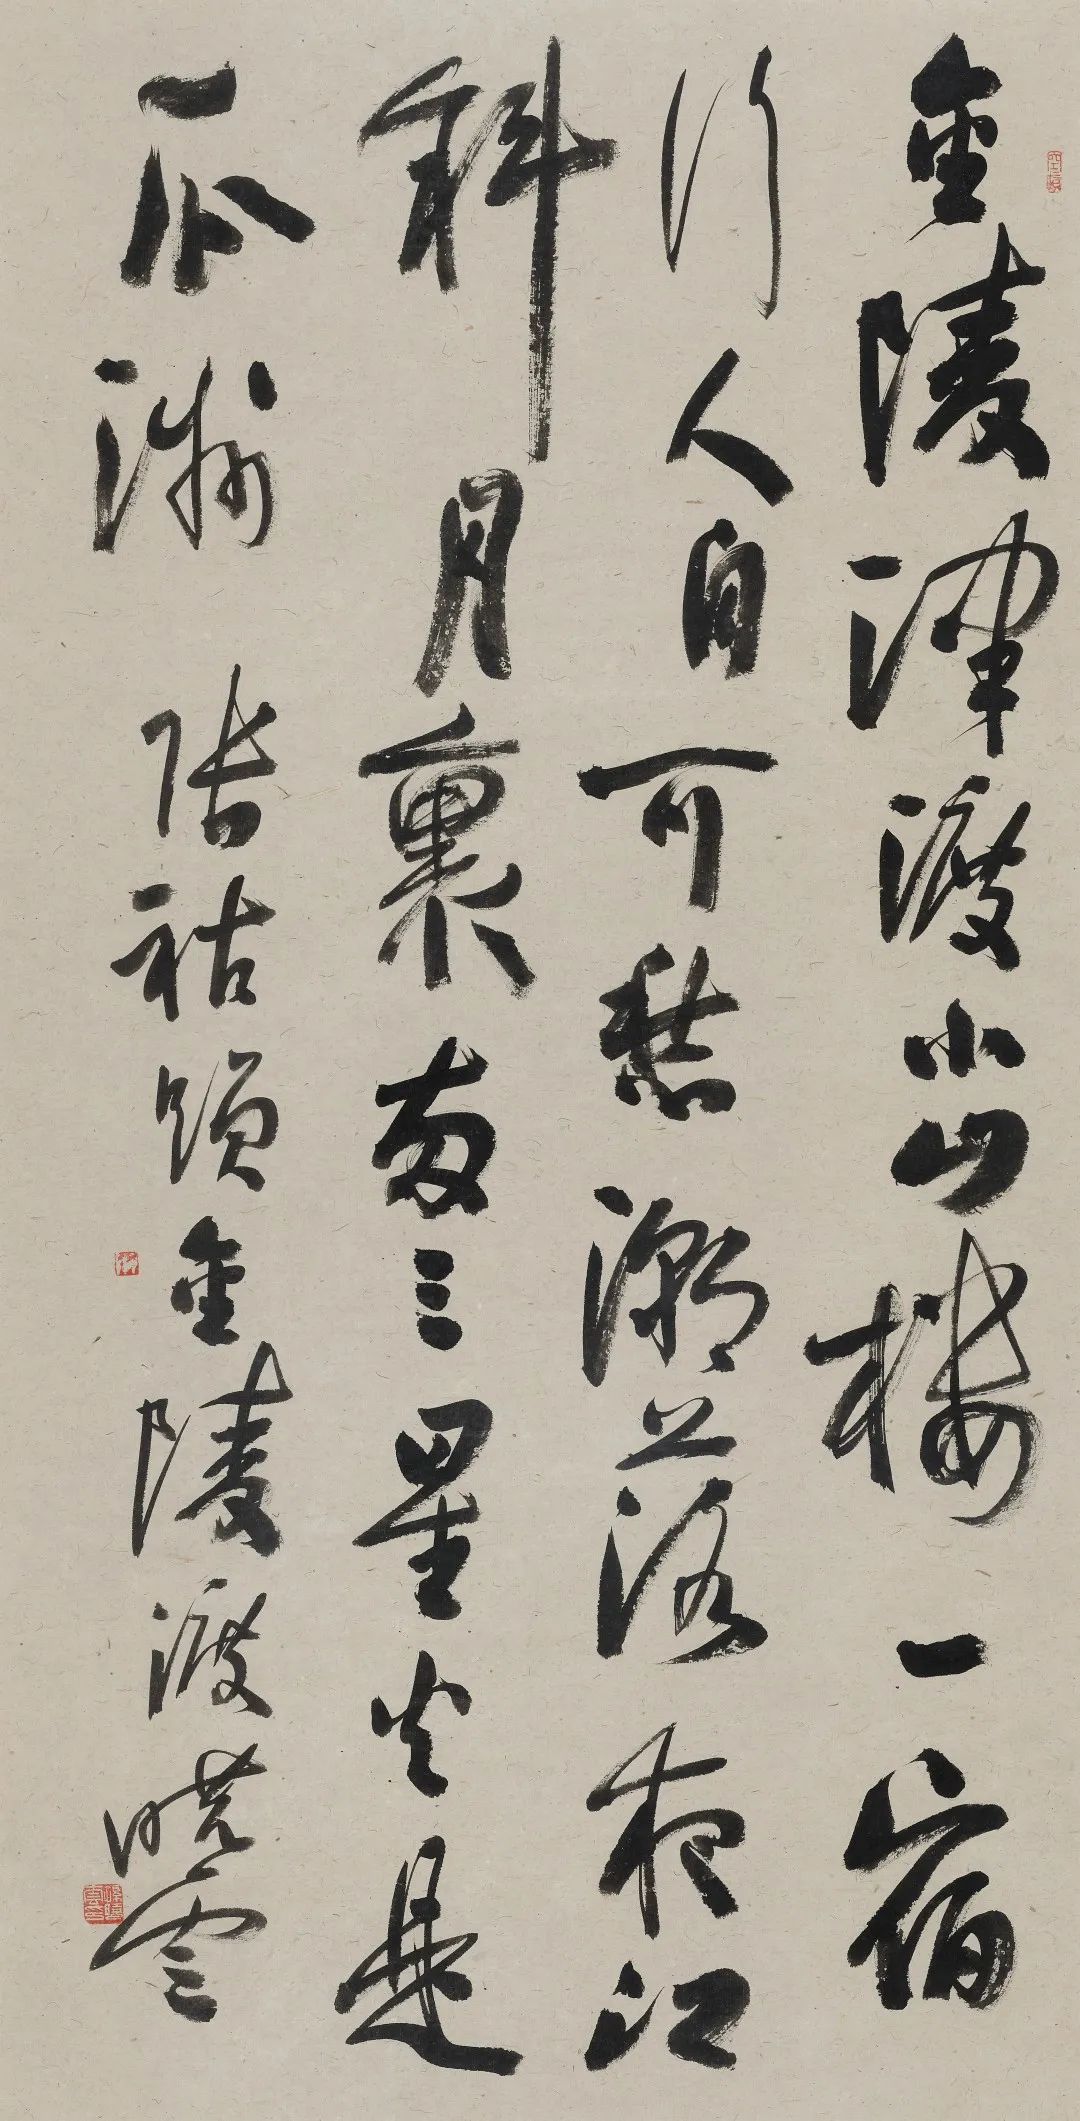 金陵津渡小山樓一宿
行人自可愁潮落夜江
斜月裏兩三星火是
瓜洲 張祜題金陵渡 曉雲